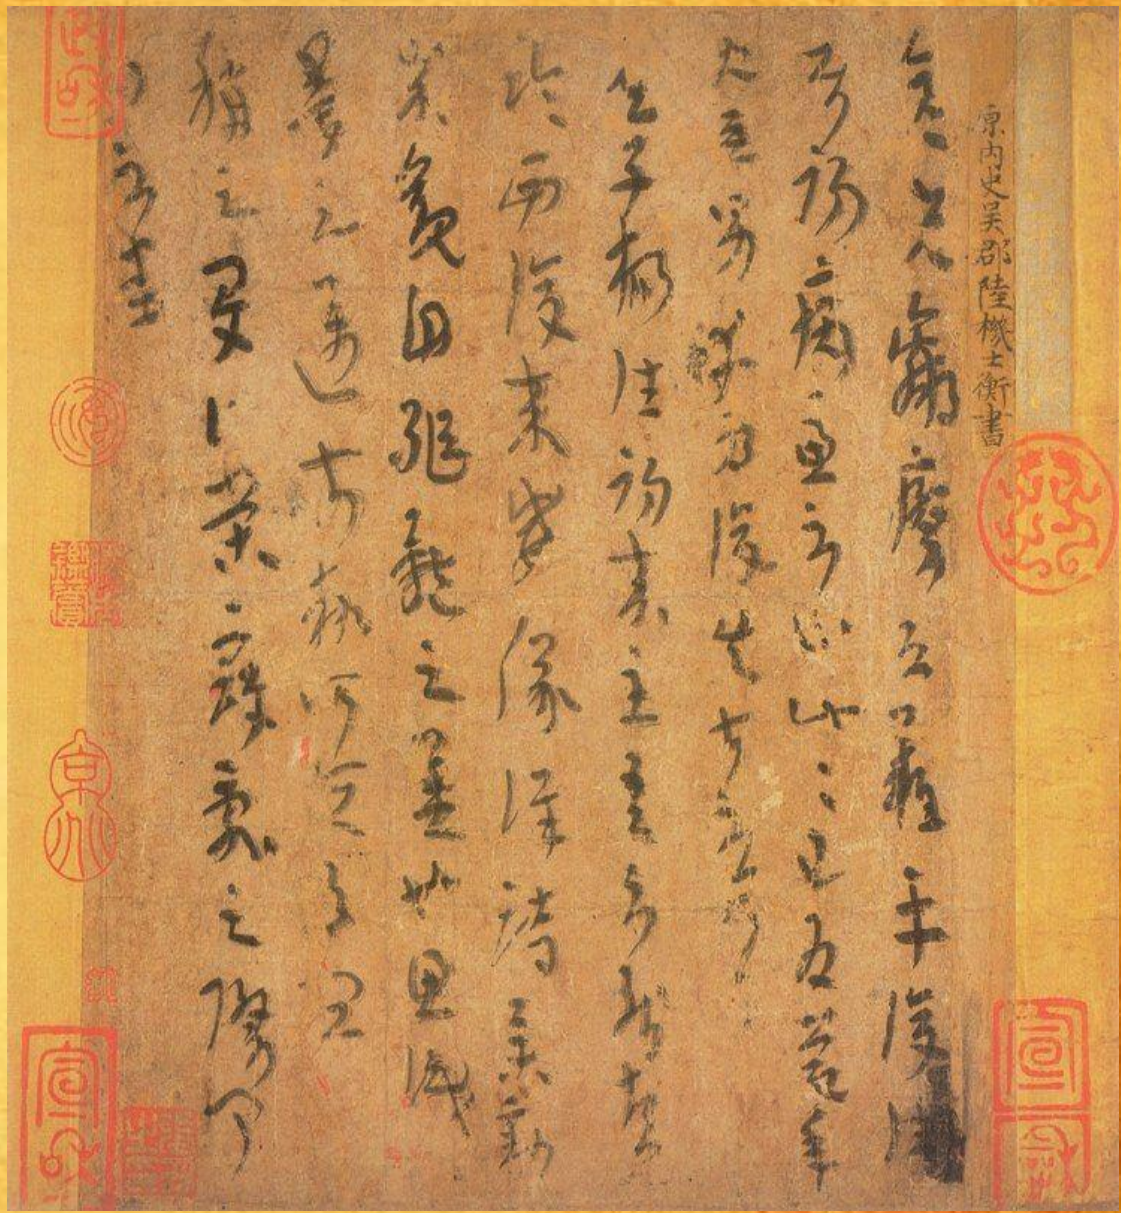 原內史吳郡陸機士衡書
彥先羸瘵恐難平復往
屬初病慮不止此此已為慶承
使唯男幸為復失前憂耳
吳子楊往初來主吾不能盡
臨西復來威儀詳跱舉動
成觀自軀體之美也思識
量之邁前執所恒有宜
稱之夏伯榮寇亂之際聞
問不悉
宣和